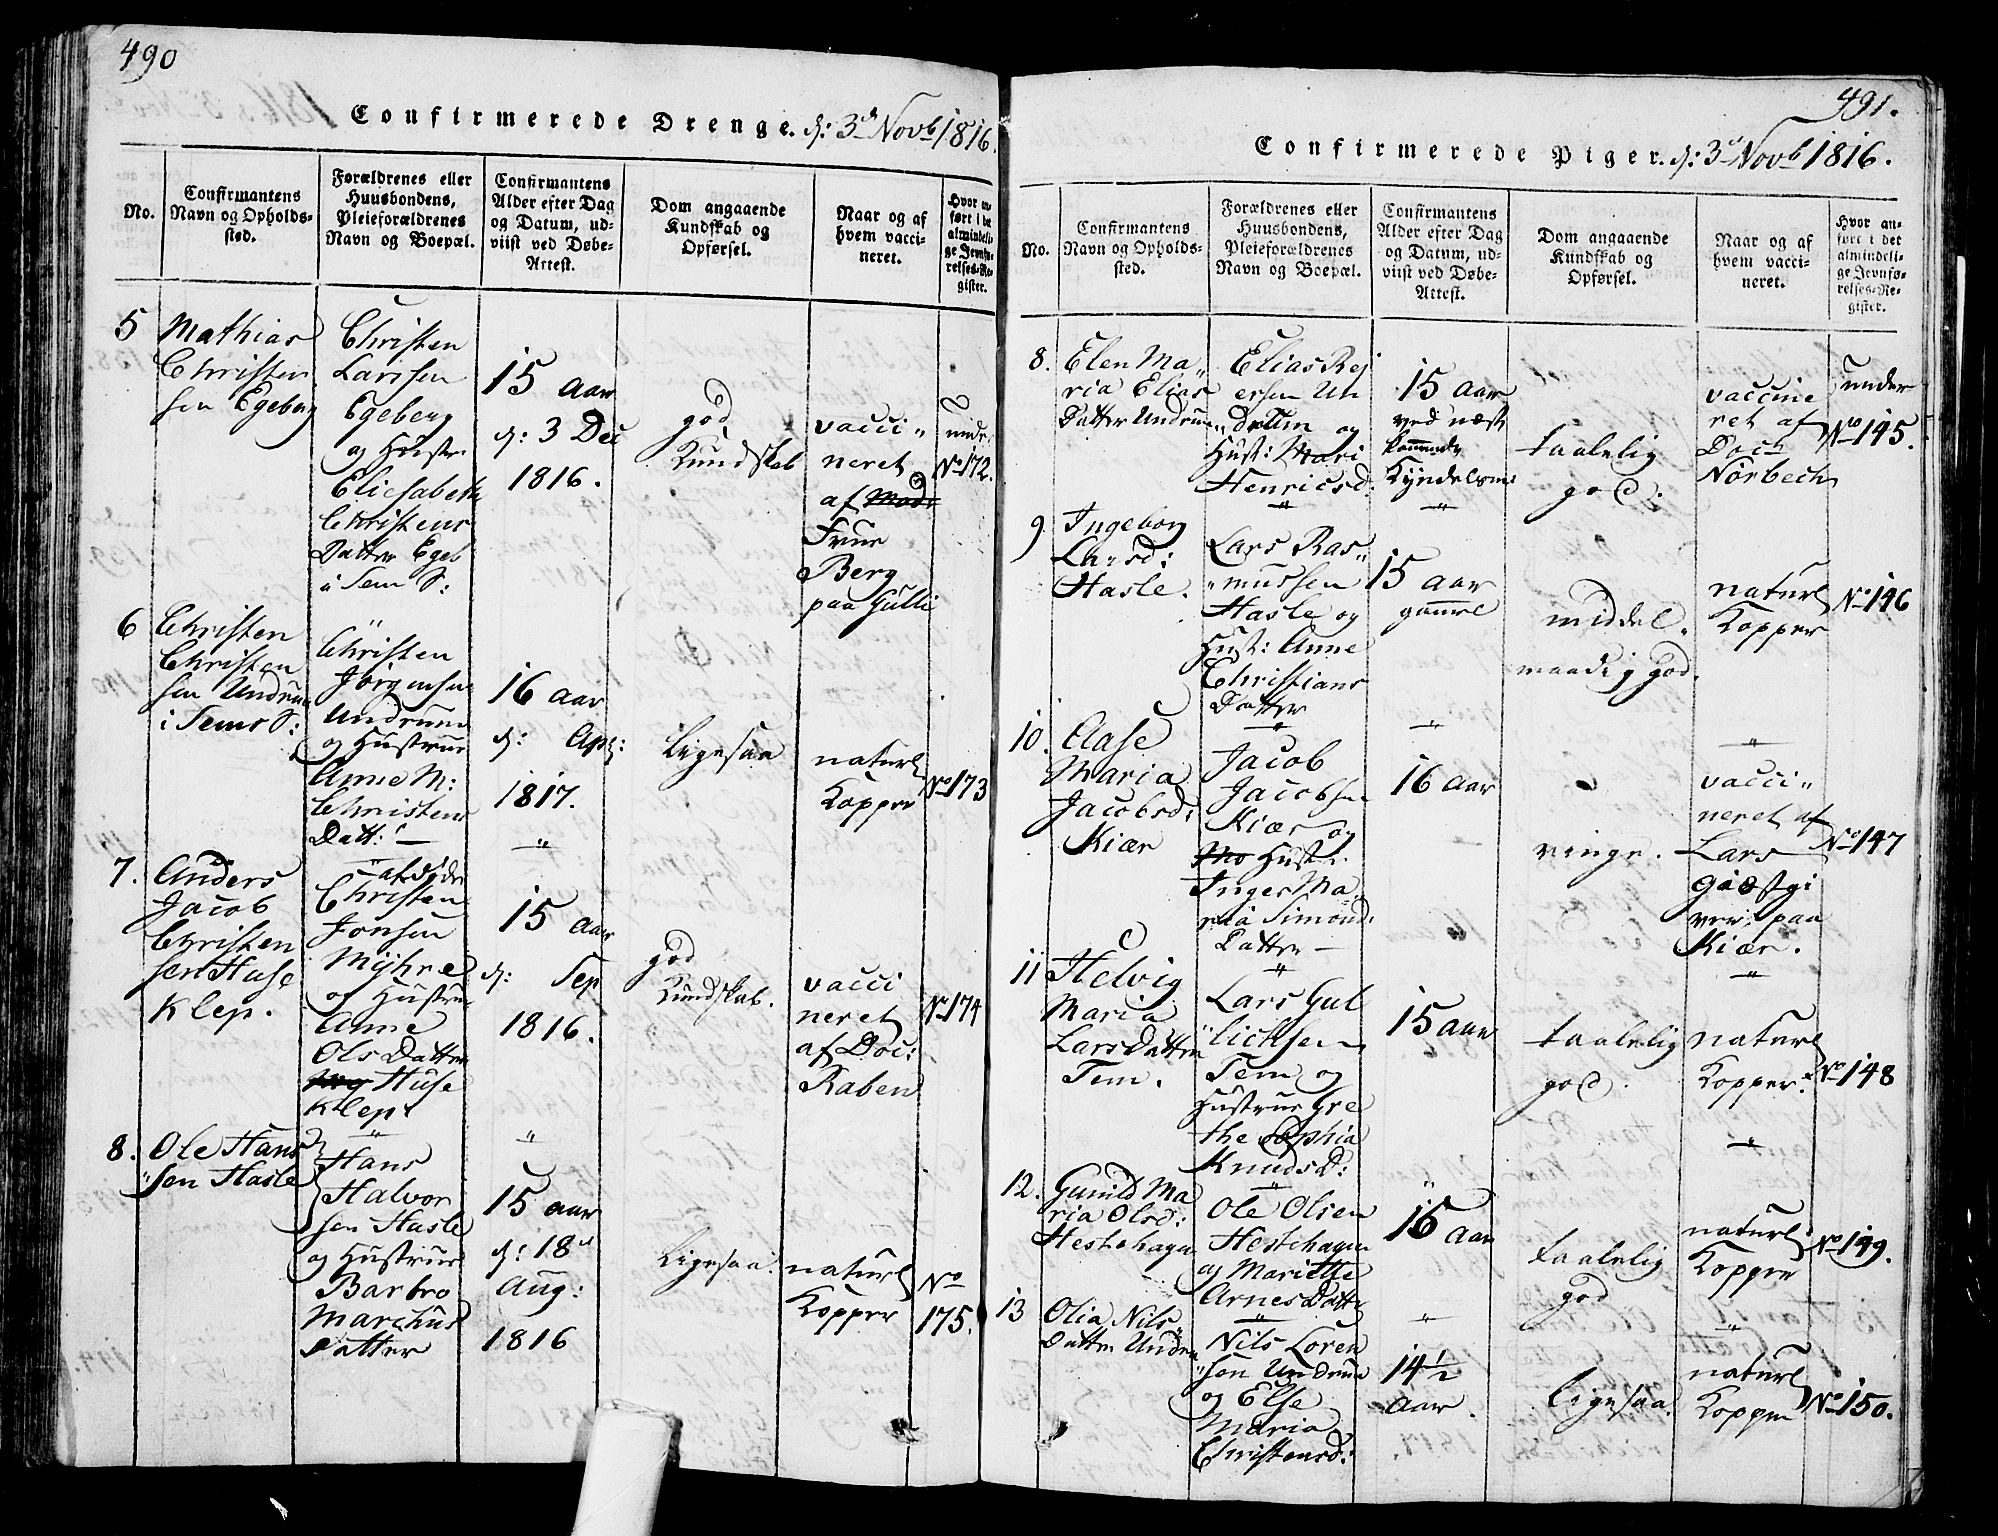 490
Confirmerede Drenge. d: 3d Novb 1816.
No.
Confirmantens
Navn og Opholds-
sted.
Forældrenes eller
Huusbondens,
Pleieforældrenes
Navn og Boepæl.
Confirmantens
Alder efter Dag
og Datum, ud-
viist ved Døbe-
Attest.
Dom angaaende
Kundskab og
Opførsel.
Naar og af
hvem vacci-
neret.
Hvor an-
ført i det
almindeli-
ge Jevnfø-
relses-Re-
gister.
5
Mathias
Christen
sen Egeberg
Christen
Larssen
Egeberg
og Hustr
Eliesabeth
Christens
Datter Egeb
i Sem S:
15 aar
d: 3 Dec
1816.
god
Kundskab
vacci"
neret
af
Frue
Berg
paa Gulli
under
No 172.
6
Christen
Christen
sen Undrum
i Sems S:
Christen
Jørgensen
Undrum
og Hustrue
Anne M:
Christens
Datt: —
16 aar
d: Apr:
1817.
Ligesaa
naturl
Kopper
No 173
7.
Anders
Jacob
Christen
sen Huse
Klep.
afdøde
Christen
Jonsen
Myhre
og Hustrue
Anne
Ols Datter
Huse
Klep.
15 aar
d: Sep
1816.
god
Kundskab.
vacci
neret
af Doc:
Raben
No 174
8.
Ole Hans
"sen Hasle
Hans
Halvor
sen Hasle
og Hustrue
Barbro
Marchus
Datter
15 aar
d: 18d
Aug:
1816
Ligesaa.
naturl
Kopper
No
175.
491.
Confirmerede Piger. d: 3d Novb 1816.
No.
Confirmantens
Navn og Opholds-
sted.
Forældrenes eller
Huusbondens,
Pleieforældrenes
Navn og Boepæl.
Confirmantens
Alder efter Dag
og Datum, ud-
viist ved Døbe-
Attest.
Dom angaaende
Kundskab og
Opførsel.
Naar og af
hvem vacci-
neret.
Hvor an-
ført i det
almindeli-
ge Jevnfø-
relses-Re-
gister.
8.
Elen Ma"
ria Elias
Datter Undrum
Elias Rej
ersen Un
"drum og
Hust: Mari
Henricsd.
15 aar
ved næst
kommende
Kyndelsm:
taalelig
god.
vaccine
ret af
Doct
Nørbech
under
No 145.
9.
Ingeborg
Larsd:
Hasle.
Lars Ras"
"mussen
Hasle og
Hust: Anne
Christians
Datter
15 aar
gamel
middel"
maadig god.
naturl
Kopper
No 146
10.
Aase
Maria
Jacobsd:
Kiær
Jacob
Jacobsen
Kiær og
Hustr.
Inger Ma"
ria Simons
Datter —
16 aar
ringe.
vacci"
neret af
Lars
Giæstgi
ver paa
Kiær.
No 147
11
Helvig
Maria
Lars Datter
Tem.
Lars Gul
"lichsen
Tem og
Hustrue Gre
the Sophia
Knuds D:
15 aar
taalelig
god.
naturl
Kopper.
No 148
12.
Gunild Ma
ria Olsd:
Hestehagen
Ole Olsen
Hestehagen
og Mariethe
Arnes Datter
16 aar
taalelig
god
naturl
Kopper
No 149.
13
Olia Nils"
Datter Undrum
Nils Loren
"sen Undrum
og Else
Maria
Christensd:
14 1/2
aar.
ligesaa.
naturl
Kopper
No 150.